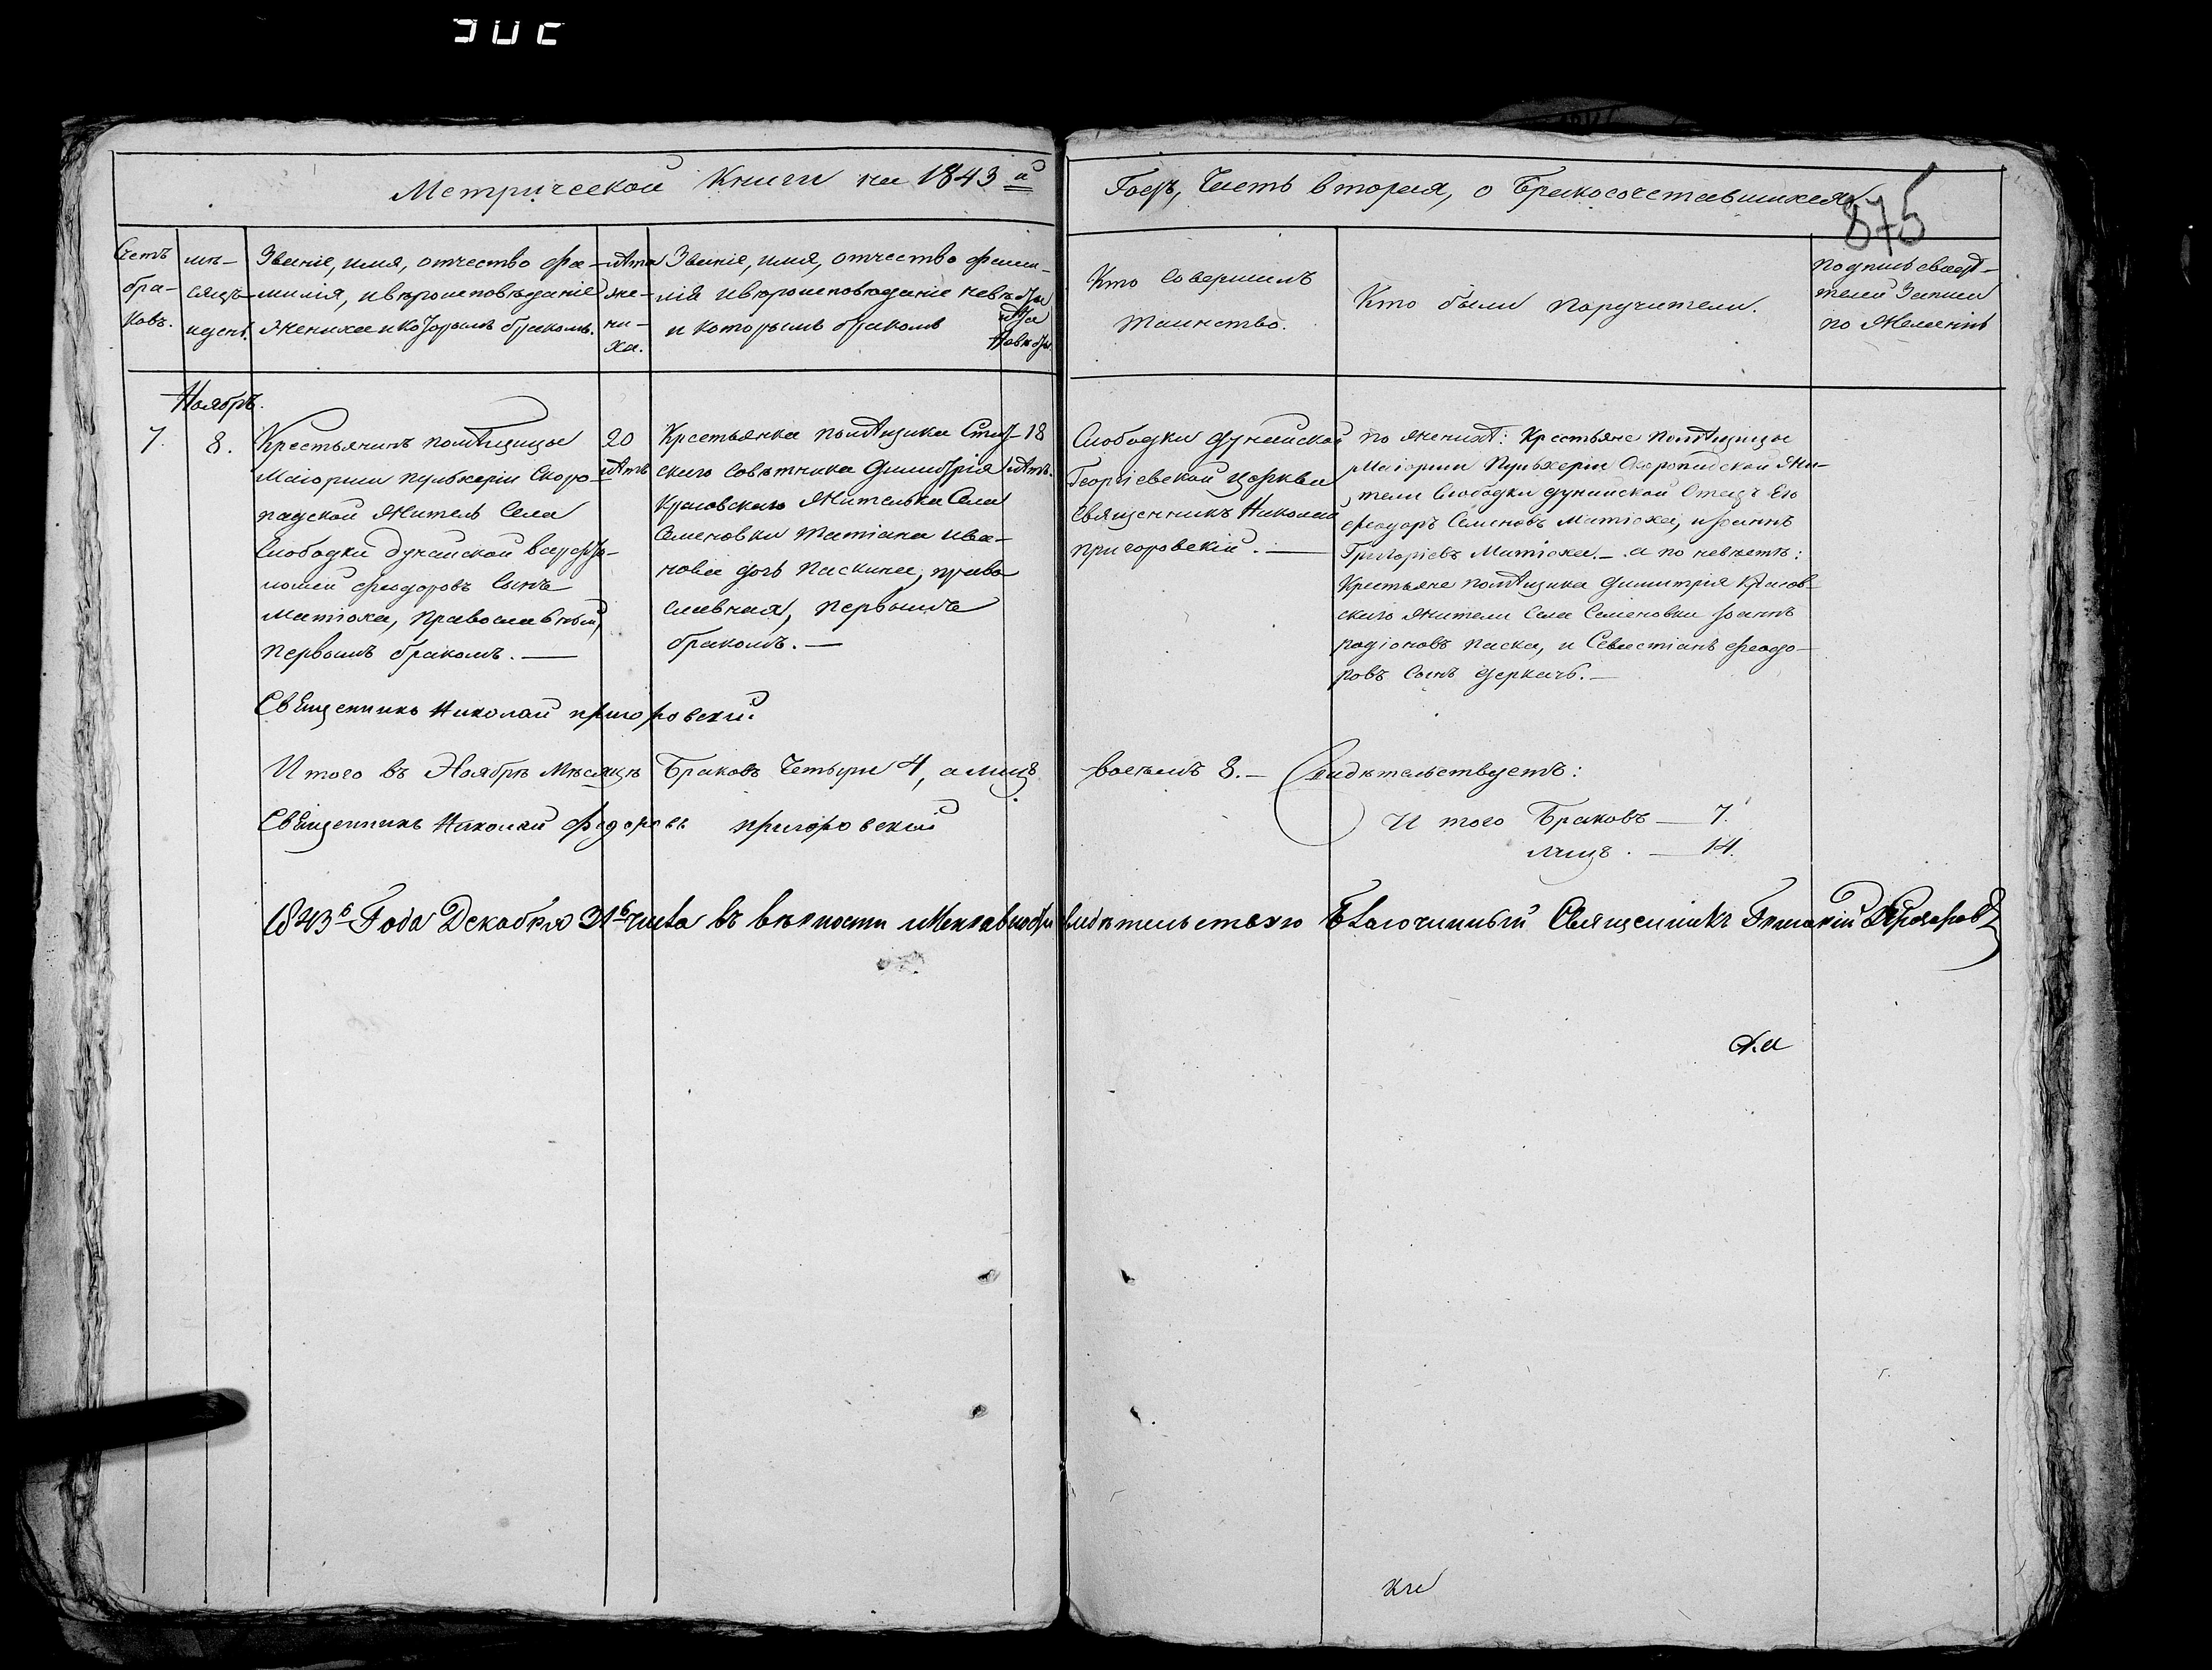 Метрической Книги на 1843й
Годъ, Часть вторая, о Бракосочетавшихся
875
Счетъ
бра-
ковъ.
мѣ-
сяцъ
и день.
Званіе, имя, отчество фа-
милія, и вѣроисповѣданіе
жениха и которымъ бракомъ.
лѣта
же-
ни-
ха.
Званіе, имя, отчество фами-
лія и вѣроисповѣданіе невѣсты
и которымъ бракомъ
лѣта
невѣсты.
Кто совершилъ
таинство.
Кто были поручители.
подпись свидѣ-
телей записи
по желанію
Ноябрь.
7.
8.
Крестьянинъ помѣщицы
Маіорши Пульхеріи Скоро-
падской житель Села
Слободки дунайской
Феодоровъ сынъ
Матюха, православный,
первымъ бракомъ. —
20
лѣтъ
Крестьянка помѣщика Стат-
скаго совѣтника Димитрія
Жителька Села
Семеновки Татіана Ива-
нова дочь Паскина, право
славная, первымъ
бракомъ. —
18
лѣтъ.
Слободки дунайской
Георгіевской церкви
священникъ Николай
Пригоровскій. —
по женихѣ: Крестьяне помѣщицы
Маіорши Пульхеріи Скоропадской жи-
тели Слободки дунайской Отецъ Его
Феодоръ Семеновъ Матюха, и Іоаннъ
Григоріевъ Матюха. — а по невѣстѣ:
Крестьяне помѣщика Димитрія Красов-
скаго жители Села Семеновки Іоаннъ
Родіоновъ Паска, и Севастіанъ Феодо-
ровъ сынъ Деркачь. —
Священникъ Николай Пригоровскій
Итого въ Ноябрѣ Мѣсяцѣ Браковъ Четыри 4, а лицъ восемъ 8. — Свидѣтельствуетъ:
Священникъ Николай Федоровъ Пригоровскій
И того Браковъ — 7.
лицъ. — 14.
1843го Года Декабря 31го числа въ вѣрности Свидѣтельствую Благочинный Священникъ